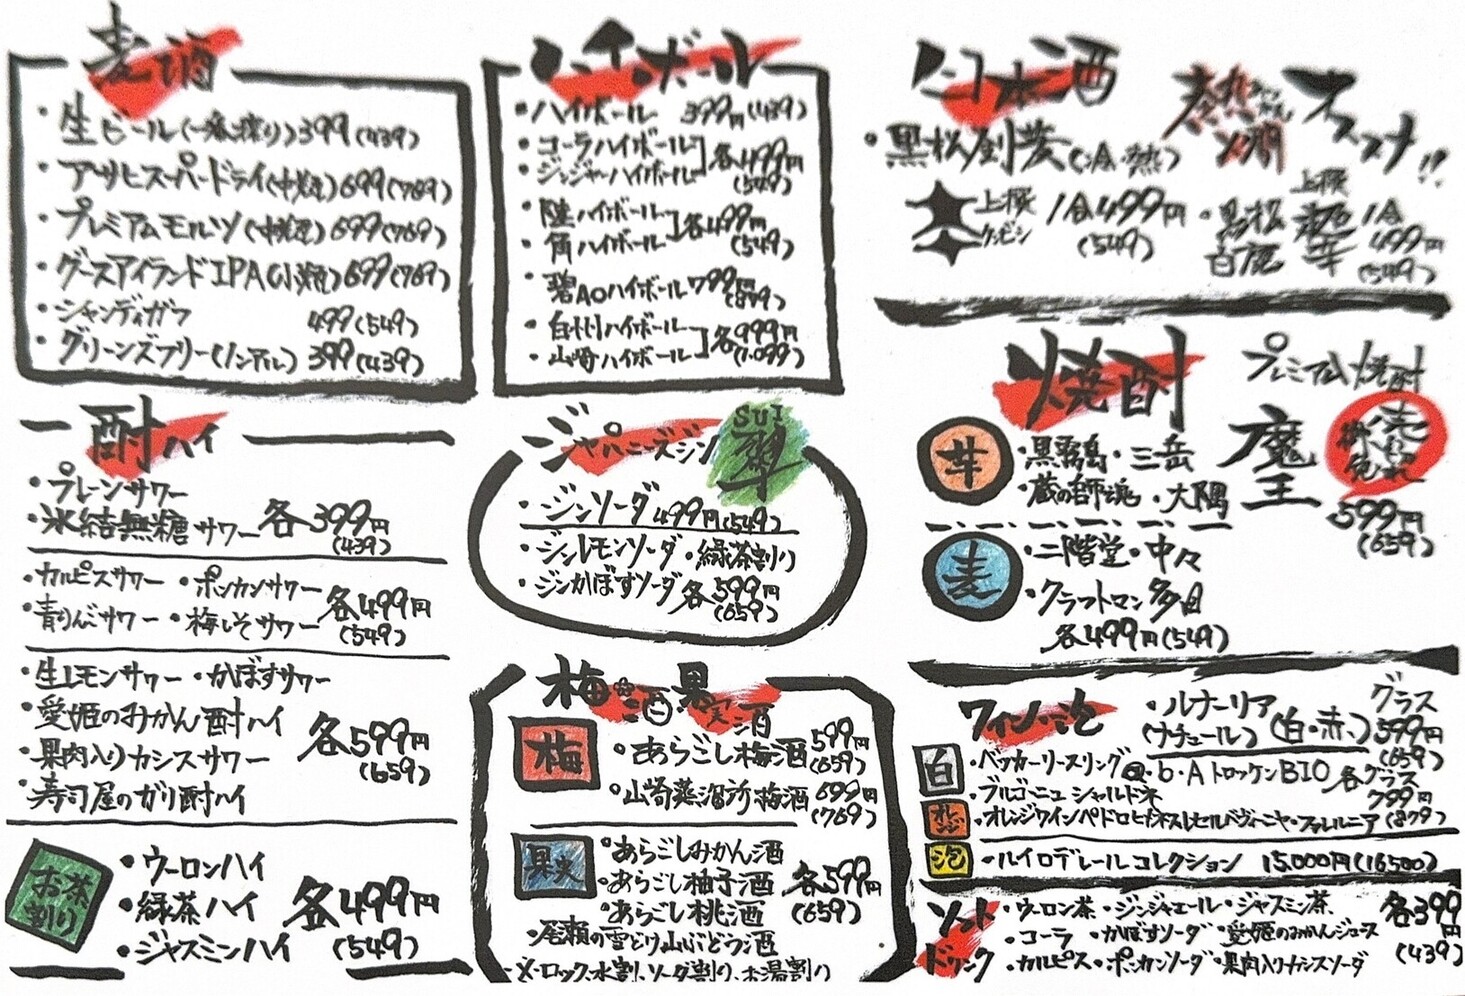 麦酒
・生ビール(一番搾り)399(439)
・アサヒスーパードライ(中瓶)699(769)
・プレミアムモルツ(中瓶)699(769)
・グースアイランドIPA(小瓶)699(769)
・シャンディガフ 499(549)
・グリーンズフリー(ノンアル) 399(439)
酎ハイ
・プレーンサワー
・氷結無糖サワー 各399円
(439)
・カルピスサワー ・ポンカンサワー
・青りんごサワー ・梅しそサワー 各499円
(549)
・生レモンサワー ・かぼすサワー
・愛媛のみかん酎ハイ
・果肉入りカシスサワー 各599円
(659)
・寿司屋のガリ酎ハイ
お茶割り
・ウーロンハイ
・緑茶ハイ
・ジャスミンハイ 各499円
(549)
ハイボール
・ハイボール 399円(439)
・コーラハイボール
・ジンジャーハイボール 各499円
(549)
・陸ハイボール
・角ハイボール 各499円
(549)
・碧AOハイボール 799円
(879)
・白州ハイボール
・山崎ハイボール 各999円
(1,099)
ジャパニーズジン
SUI
翠
・ジンソーダ 499円(549)
・ジンレモンソーダ ・緑茶割り
・ジンかぼすソーダ 各599円
(659)
梅酒 果実酒
梅
・あらごし梅酒 599円
(659)
・山崎蒸溜所梅酒 699円
(769)
果実
・あらごしみかん酒
・あらごし柚子酒
・あらごし桃酒 各599円
(659)
・尾瀬の雪どけ山ぶどう酒
※ロック、水割、ソーダ割り、お湯割り
日本酒
熱燗 オススメ!!
・黒松剣菱(冷・熱)
上撰 1合499円
(549)
・黒松白鹿 上撰 1合 499円
(549)
焼酎
芋
・黒霧島・三岳
・蔵の師魂・大隅
麦
・二階堂・中々
・クラフトマン多田
各499円(549)
プレミアム焼酎
魔王
売り切れ御免
599円
(659)
ワイン・泡
・ルナーリア
(ナチュール) (白・赤) グラス
599円
(659)
白
・バッカーリースリング ・b・AトロッケンBIO
・ブルゴーニュ シャルドネ
オレンジ
各グラス
799円
(879)
泡
・ルイロデレールコレクション 15,000円(16500)
ソフトドリンク
・ウーロン茶・ジンジャエール・ジャスミン茶
・コーラ ・かぼすソーダ ・愛媛のみかんジュース
・カルピス・ポンカンソーダ・果肉入りカシスソーダ
各399円
(439)